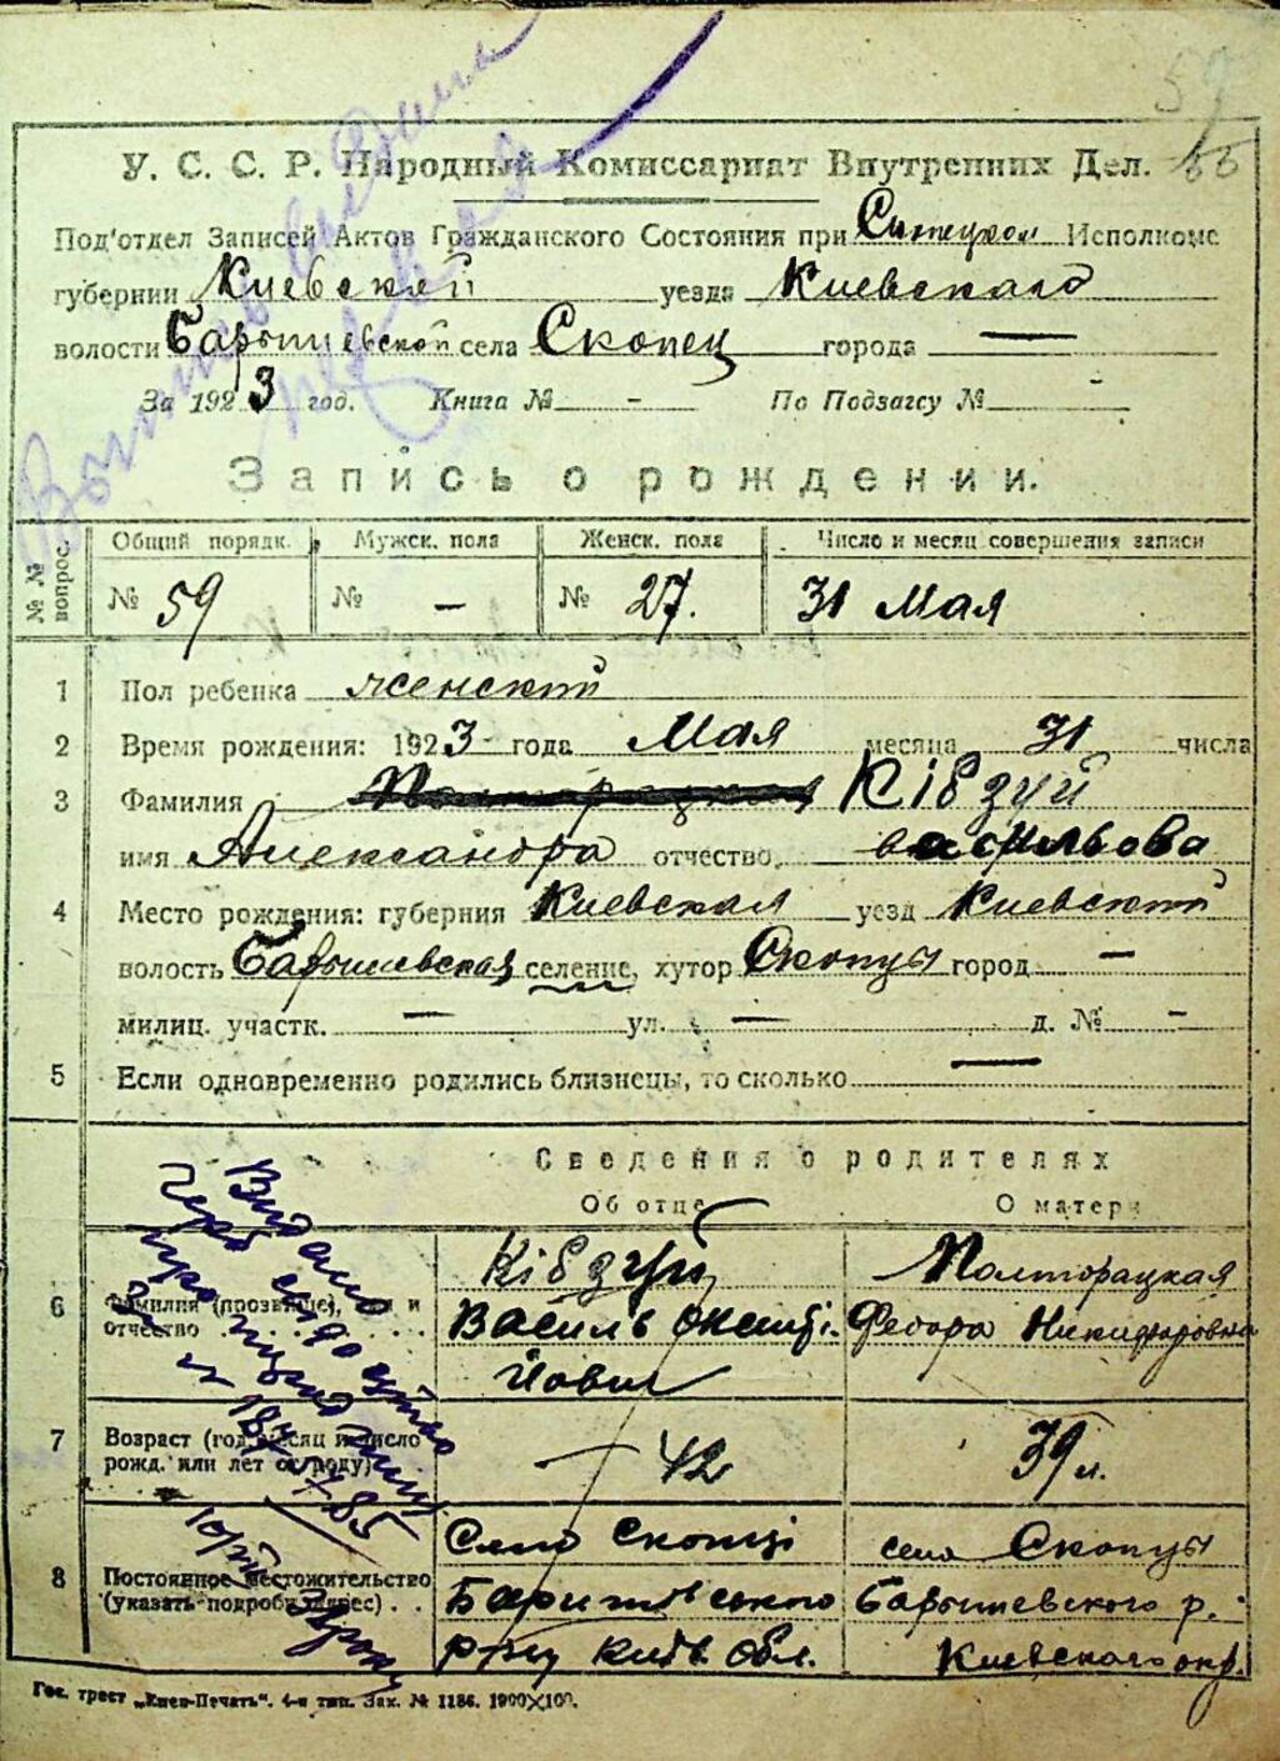 59
66
У. С. С. Р. Народный Комиссариат Внутренних Дел.
Под'отдел Записей Актов Гражданского Состояния при Исполкоме
губернии Киевской уезда Киевского
волости Барышевской села Скопец города —
За 1923 год. Книга № - По Подзагсу № -
Запись о рождении.
№ № вопрос. Общий порядк. Мужск. пола Женск. пола Число и месяц совершения записи
№ 59 № — № 27. 31 Мая
1 Пол ребенка женский
2 Время рождения: 1923 года Мая месяца 31 числа
3 Фамилия Ківзуй
имя Александра отчество васильова
4 Место рождения: губерния Киевская уезд Киевский
волость Барышевская селение, хутор Скопцы город —
милиц. участк. — ул. — д. № -
5 Если одновременно родились близнецы, то сколько —
Сведения о родителях
Об отце О матери
6 Фамилия (прозвище), имя и отчество
Ківзуй
Василь
Полторацкая
Феодора Никифоровна
7 Возраст (год, месяц и число рожд. или лет от роду)
— 42
39 л.
8 Постоянное местожительство (указать подробн. адрес)
Село Скопці
Баришівського
р-ну Київ. Обл.
село Скопцы
Барышевского р.
Киевского окр.
Видано
свідоцтво
Гос. трест „Киев-Печать". 4-я тип. Зах. № 1186. 1900X100.